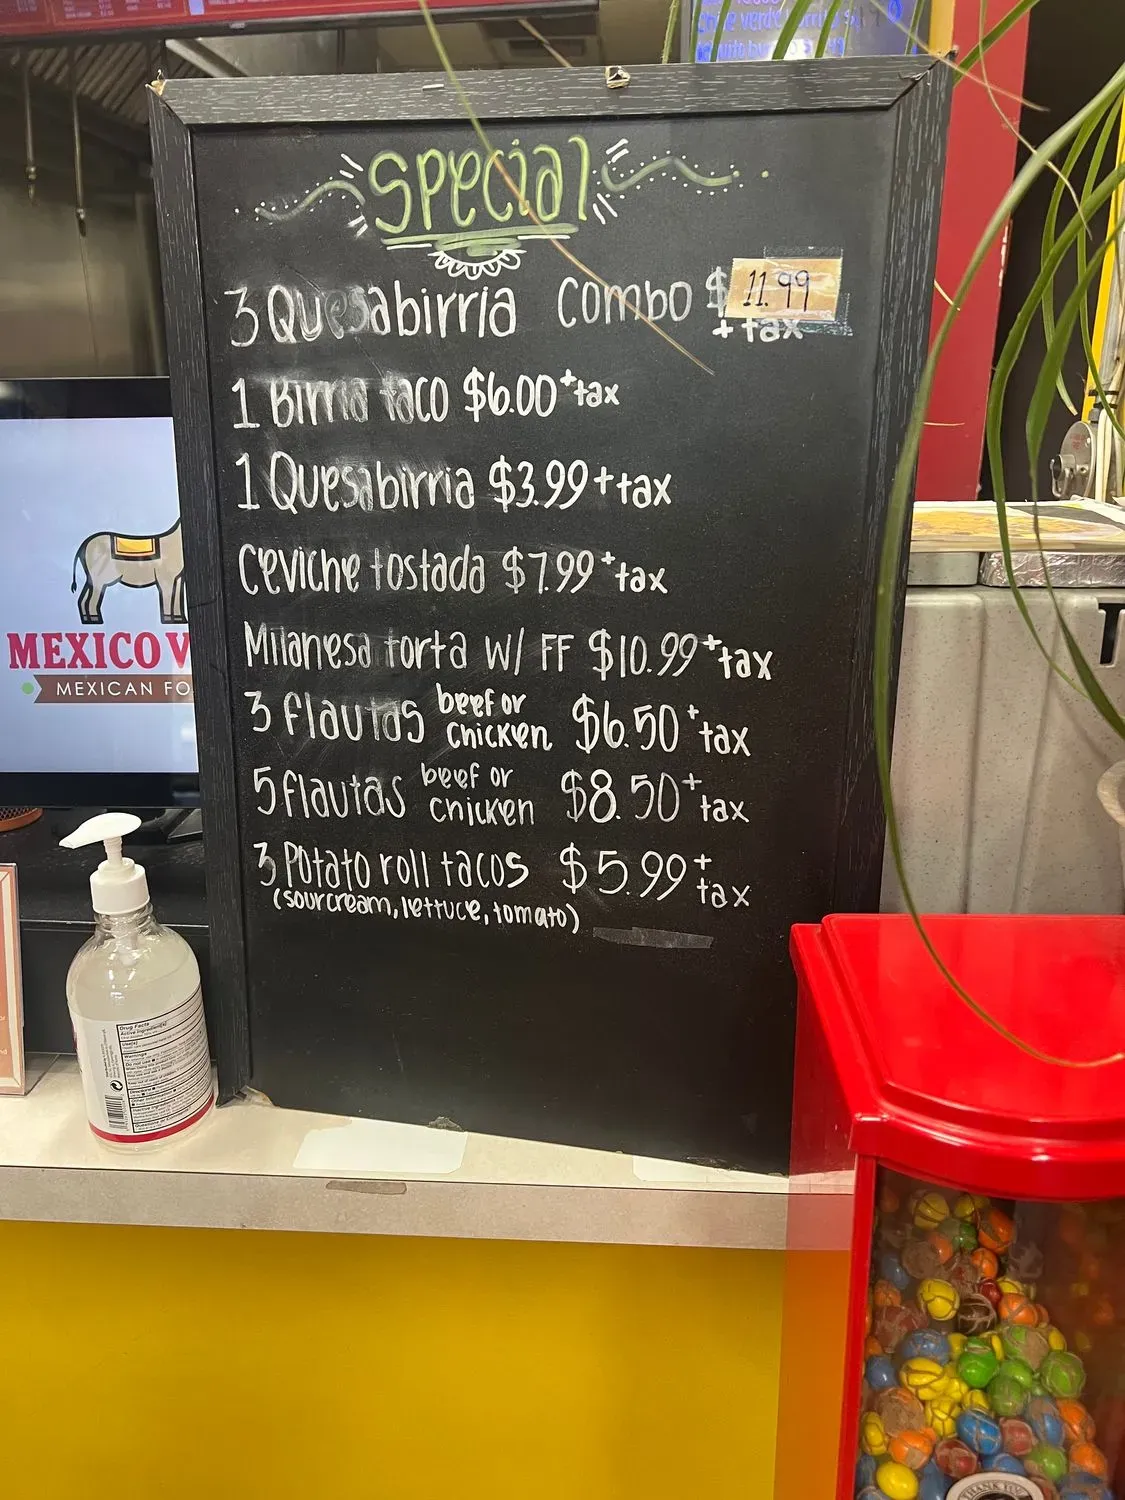 Special
3 Quesabirria Combo $ 11.99
+ tax
1 Birria taco $6.00 + tax
1 Quesabirria $3.99 + tax
Ceviche tostada $7.99 + tax
Milanesa torta W/ FF $10.99 + tax
3 flautas beef or chicken $6.50 + tax
5 flautas beef or chicken $8.50 + tax
3 Potato roll tacos $5.99 + tax
(sourcream, lettuce, tomato)
MEXICO V
MEXICAN FO
Drug Facts
THANK YOU